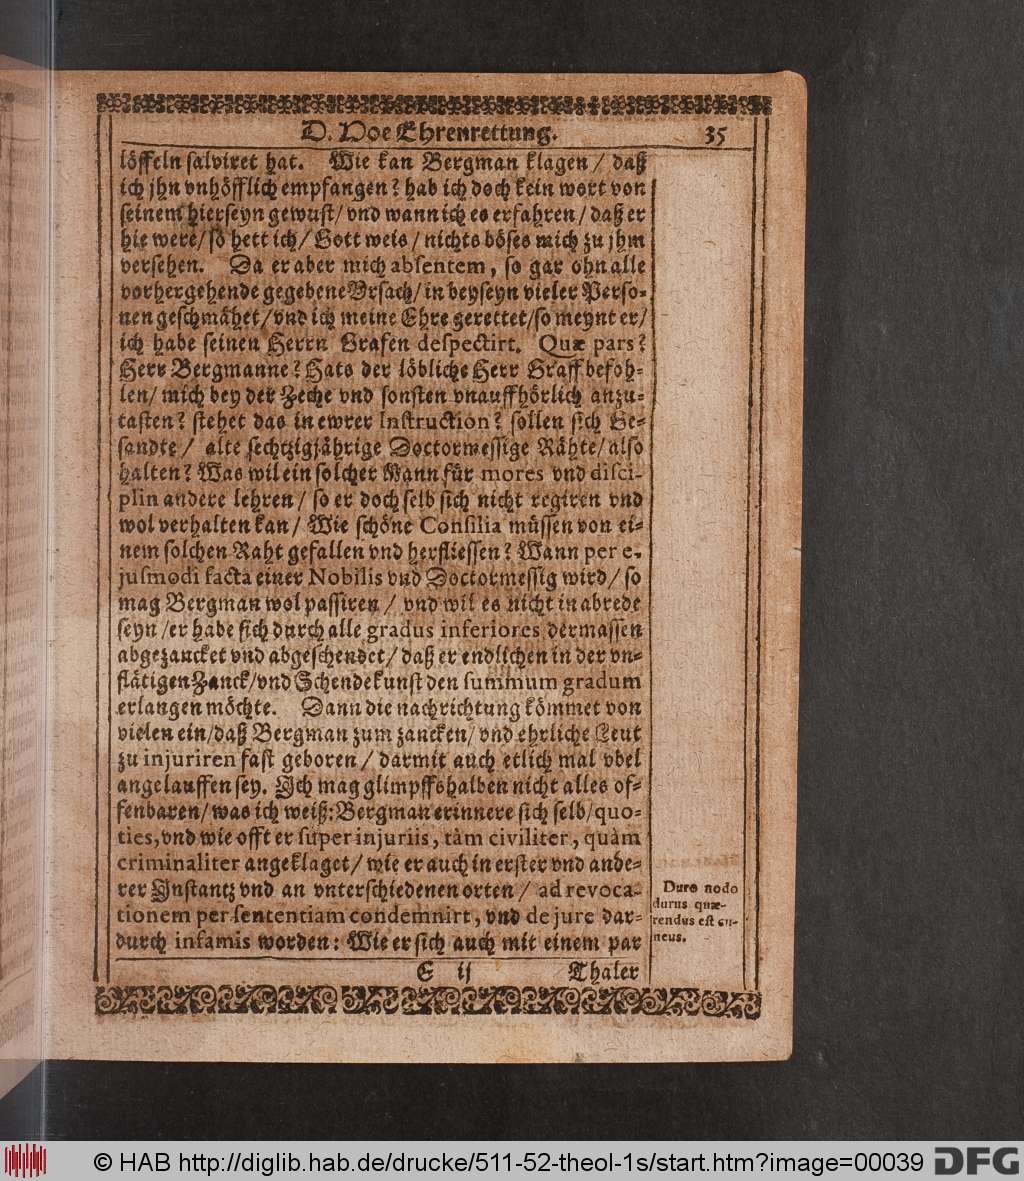 D. Hoe Ehrenrettung. 35
löffeln salviret hat. Wie kan Bergman klagen / daß
ich jhn vnhöfflich empfangen? hab ich doch kein wort von
seinem hierseyn gewust/ vnd wann ich es erfahren / daß er
hie were/ so hett ich / Gott weis / nichts böses mich zu jhm
versehen. Da er aber mich absentem, so gar ohn alle
vorhergehende gegebene Vrsach/ in beyseyn vieler Perso-
nen geschmähet/ vnd ich meine Ehre gerettet/ so meynt er/
ich habe seinen Herrn Grafen despectirt. Quæ pars?
Herr Bergmanne? Hats der löbliche Herr Graff befoh-
len/ mich bey der Zeche vnd sonsten vnauffhörlich anzu-
tasten? stehet das in ewrer Instruction? sollen sich Ge-
sandte / alte sechtzigjährige Doctormessige Rähte/ also
halten? Was wil ein solcher Mann für mores vnd disci-
plin andere lehren / so er doch selb sich nicht regiren vnd
wol verhalten kan / Wie schöne Consilia müssen von ei-
nem solchen Raht gefallen vnd herfliessen? Wann per e-
jusmodi facta einer Nobilis vnd Doctormessig wird / so
mag Bergman wol passiren / vnd wil es nicht in abrede
seyn / er habe sich durch alle gradus inferiores dermassen
abgezancket vnd abgeschendet / daß er endlichen in der vn-
flätigen Zanck/ vnd Schendekunst den summum gradum
erlangen möchte. Dann die nachrichtung kömmet von
vielen ein/ daß Bergman zum zancken/ vnd ehrliche Leut
zu injuriren fast geboren / darmit auch etlich mal vbel
angelauffen sey. Ich mag glimpffshalben nicht alles of-
fenbaren/ was ich weiß: Bergman erinnere sich selb/ quo-
ties, vnd wie offt er super injuriis, tàm civiliter, quàm
criminaliter angeklaget / wie er auch in erster vnd ande-
rer Instantz vnd an vnterschiedenen orten / ad revoca-
tionem per sententiam condemnirt, vnd de jure dar-
durch infamis worden: Wie er sich auch mit einem par
Duro nodo
durus quæ-
rendus est cu-
neus.
E ij Thaler
© HAB http://diglib.hab.de/drucke/511-52-theol-1s/start.htm?image=00039 DFG